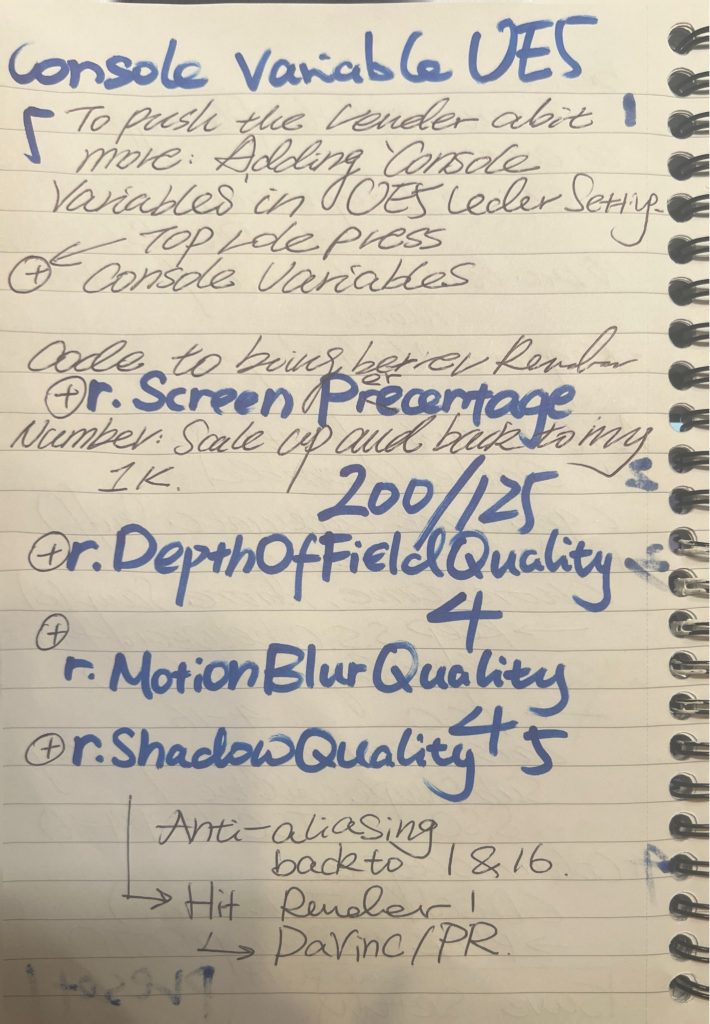 Console Variable UE5
To push the render abit
more: Adding 'Console
Variables' in UE5
Top press
+ Console Variables
Code to bring better Render
+ r.Screen Precentage
er
Number: Scale up and back to my
1K.
200/125
+ r.DepthOfFieldQuality
4
+
r.MotionBlurQuality
4
+ r.ShadowQuality 5
Anti-aliasing
back to 1 & 16.
Hit Render!
DaVinc/PR.